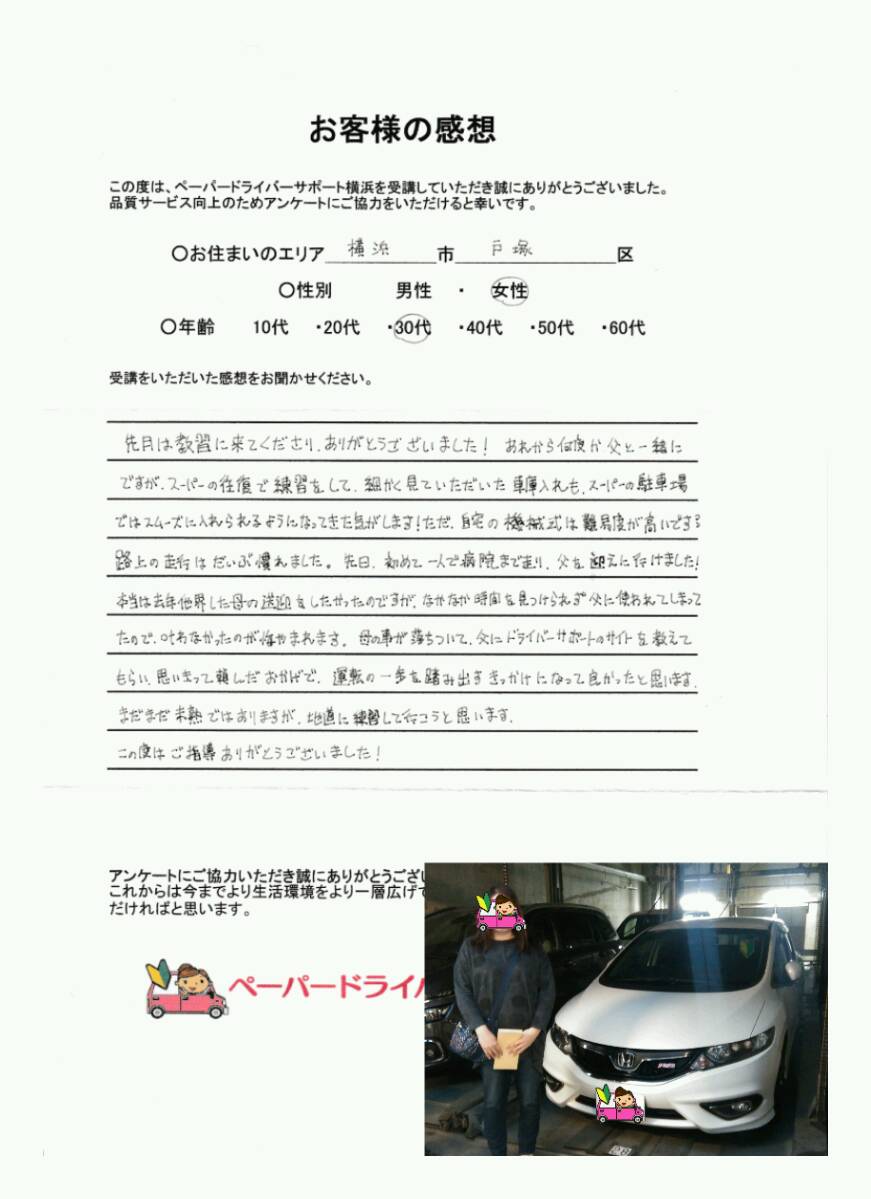 お客様の感想
この度は、ペーパードライバーサポート横浜を受講していただき誠にありがとうございました。
品質サービス向上のためアンケートにご協力をいただけると幸いです。
〇お住まいのエリア 横浜 市 戸塚 区
〇性別 男性 ・ 女性
〇年齢 10代 ・20代 ・30代 ・40代 ・50代 ・60代
受講をいただいた感想をお聞かせください。
先日は教習に来てくださり、ありがとうございました! あれから何度か父と一緒に
ですが、スーパーの往復で練習をして、細かく見ていただいた車庫入れも、スーパーの駐車場
ではスムーズに入れられるようになってきた気がします!ただ、自宅の機械式は難易度が高いです
路上の走行はだいぶ慣れました。先日、初めて一人で病院まで走り、父を迎えに行けました!
本当は去年他界した母の送迎をしたかったのですが、なかなか時間を見つけられず父に使われてしまって
たので、叶わなかったのが悔やまれます。母の事が落ちついて、父にドライバーサポートのサイトを教えて
もらい、思いきって頼んだおかげで、運転の一歩を踏み出すきっかけになって良かったと思います。
まだまだ未熟ではありますが、地道に練習して行こうと思います。
この度はご指導ありがとうございました!
アンケートにご協力いただき誠にありがとうござい
これからは今までより生活環境をより一層広げて
だければと思います。
ペーパードライバ